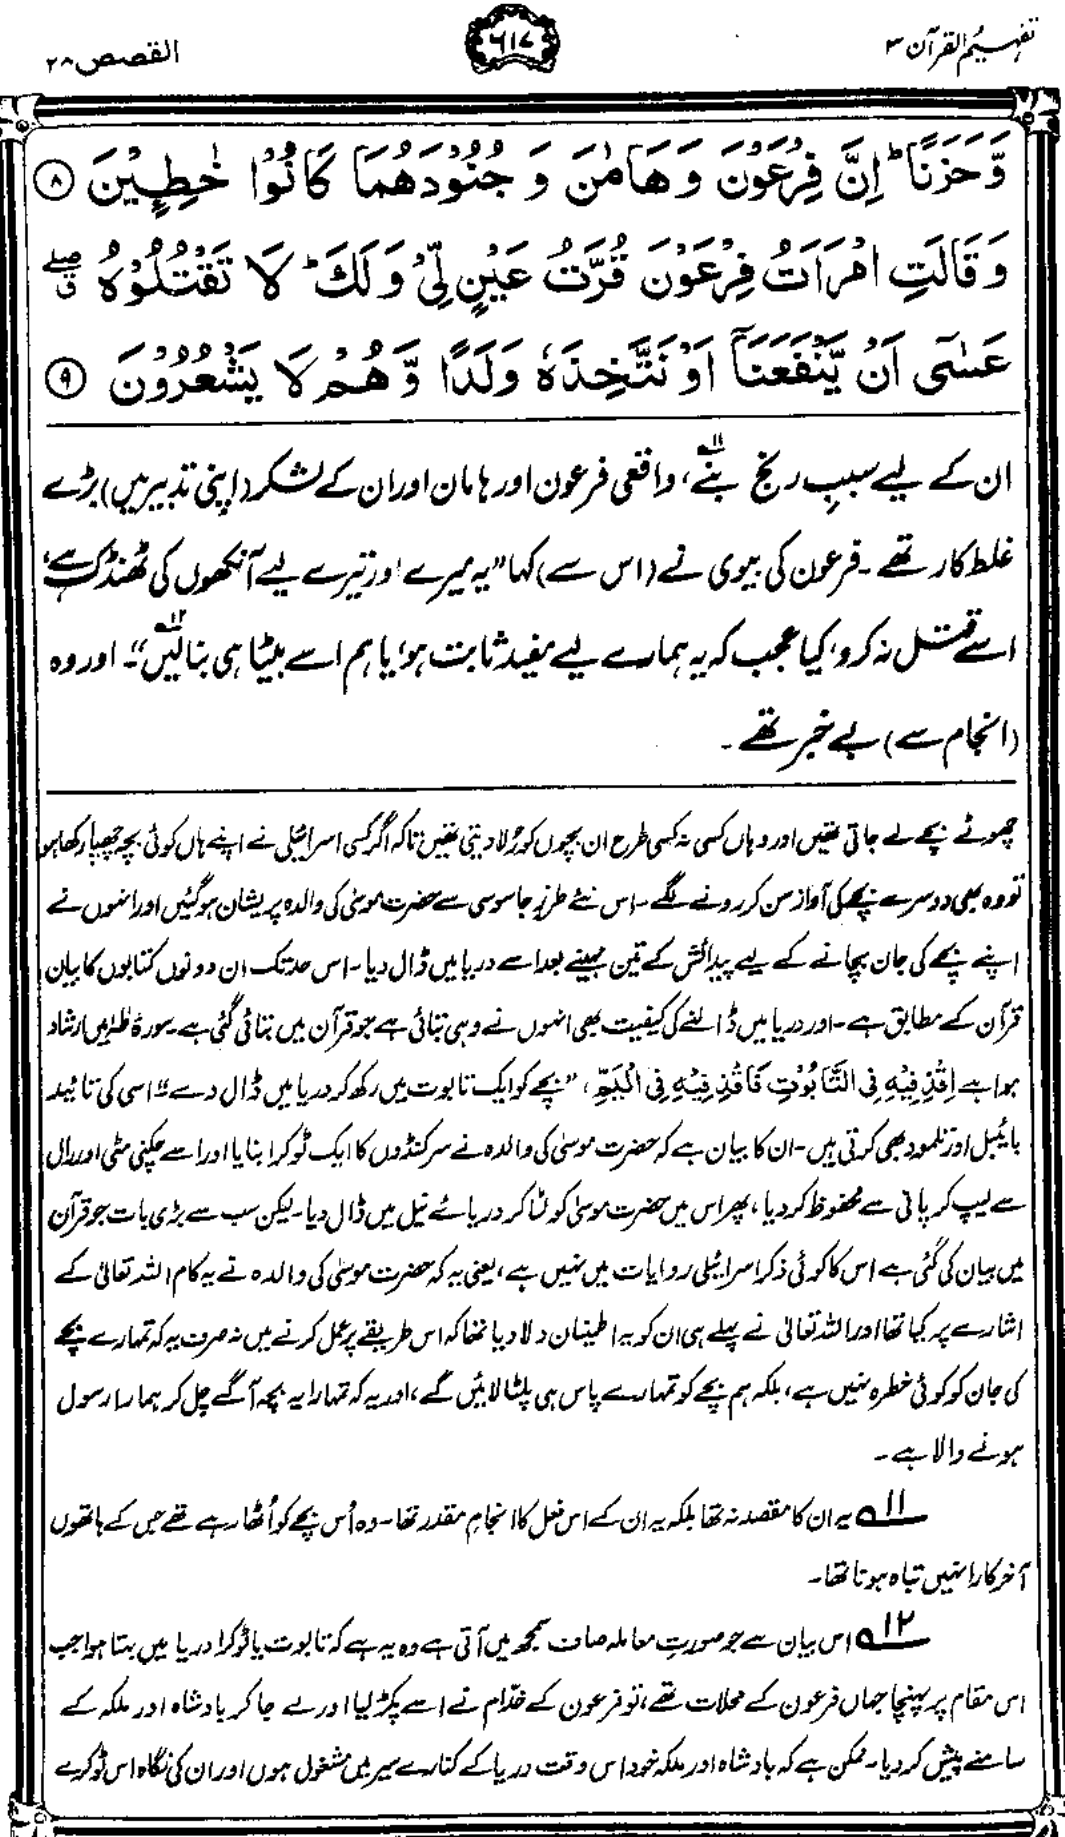 تفہیم القرآن ۳
۶۱۷
القصص ۲۸
وَّحَزَنًا ؕ اِنَّ فِرْعَوْنَ وَ هَامٰنَ وَ جُنُوْدَهُمَا كَانُوْا خٰطِـِٕيْنَ ﴿۸﴾
وَ قَالَتِ امْرَاَتُ فِرْعَوْنَ قُرَّتُ عَيْنٍ لِّيْ وَ لَكَ ؕ لَا تَقْتُلُوْهُ ۖۗ
عَسٰۤى اَنْ يَّنْفَعَنَاۤ اَوْ نَتَّخِذَهٗ وَلَدًا وَّ هُمْ لَا يَشْعُرُوْنَ ﴿۹﴾
ان کے لیے سببِ رنج بنے،۱۱ واقعی فرعون اور ہامان اور ان کے لشکر (اپنی تدبیر میں) بڑے
غلط کار تھے۔ فرعون کی بیوی نے (اس سے) کہا ”یہ میرے اور تیرے لیے آنکھوں کی ٹھنڈک ہے،
اسے قتل نہ کرو، کیا عجب کہ یہ ہمارے لیے مفید ثابت ہو، یا ہم اسے بیٹا ہی بنا لیں“۱۲۔ اور وہ
(انجام سے) بے خبر تھے۔
چھوٹے بچے لے جاتی تھیں اور وہاں کسی نہ کسی طرح ان بچوں کو رُلا دیتی تھیں تاکہ اگر کسی اسرائیلی نے اپنے ہاں کوئی بچہ چھپا رکھا ہو
تو وہ بھی دوسرے بچے کی آواز سن کر رونے لگے۔ اس نئے طرزِ جاسوسی سے حضرت موسیٰ کی والدہ پریشان ہوگئیں اور انہوں نے
اپنے بچے کی جان بچانے کے لیے پیدائش کے تین مہینے بعد اسے دریا میں ڈال دیا۔ اس حد تک ان دونوں کتابوں کا بیان
قرآن کے مطابق ہے۔ اور دریا میں ڈالنے کی کیفیت بھی انہوں نے وہی بتائی ہے جو قرآن میں بتائی گئی ہے۔ سورۂ طٰہٰ میں ارشاد
ہوا ہے اِقْذِفِيْهِ فِى التَّابُوْتِ فَاقْذِفِيْهِ فِى الْيَمِّ، ”بچے کو ایک تابوت میں رکھ کر دریا میں ڈال دے“ اسی کی تائید
بائیبل اور تلمود بھی کرتی ہیں۔ ان کا بیان ہے کہ حضرت موسیٰ کی والدہ نے سرکنڈوں کا ایک ٹوکرا بنایا اور اسے چکنی مٹی اور رال
سے لیپ کر پانی سے محفوظ کر دیا، پھر اس میں حضرت موسیٰ کو لٹا کر دریائے نیل میں ڈال دیا۔ لیکن سب سے بڑی بات جو قرآن
میں بیان کی گئی ہے اس کا کوئی ذکر اسرائیلی روایات میں نہیں ہے، یعنی یہ کہ حضرت موسیٰ کی والدہ نے یہ کام اللہ تعالیٰ کے
اشارے پر کیا تھا اور اللہ تعالیٰ نے پہلے ہی ان کو یہ اطمینان دلا دیا تھا کہ اس طریقے پر عمل کرنے میں نہ صرف یہ کہ تمہارے بچے
کی جان کو کوئی خطرہ نہیں ہے، بلکہ ہم بچے کو تمہارے پاس ہی پلٹا لائیں گے، اور یہ کہ تمہارا یہ بچہ آگے چل کر ہمارا رسول
ہونے والا ہے۔
۱۱ یہ ان کا مقصد نہ تھا بلکہ یہ ان کے اس فعل کا انجامِ مقدر تھا۔ وہ اُس بچے کو اُٹھا رہے تھے جس کے ہاتھوں
آخر کار انہیں تباہ ہونا تھا۔
۱۲ اس بیان سے جو صورتِ معاملہ صاف سمجھ میں آتی ہے وہ یہ ہے کہ تابوت یا ٹوکرا دریا میں بہتا ہوا جب
اس مقام پر پہنچا جہاں فرعون کے محلات تھے، تو فرعون کے خدّام نے اسے پکڑ لیا اور لے جا کر بادشاہ اور ملکہ کے
سامنے پیش کر دیا۔ ممکن ہے کہ بادشاہ اور ملکہ خود اس وقت دریا کے کنارے سیر میں مشغول ہوں اور ان کی نگاہ اس ٹوکرے